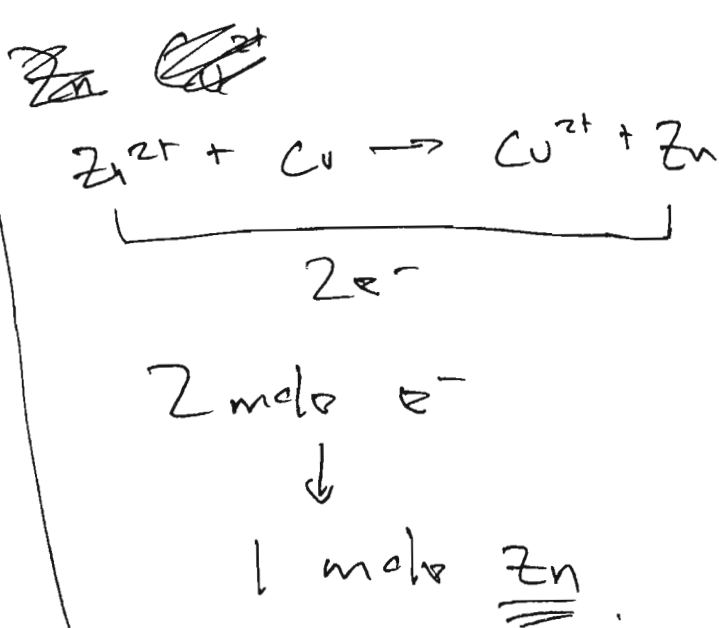 Zn²⁺ + Cu → Cu²⁺ + Zn
2e⁻
2 mole e⁻
↓
1 mole Zn